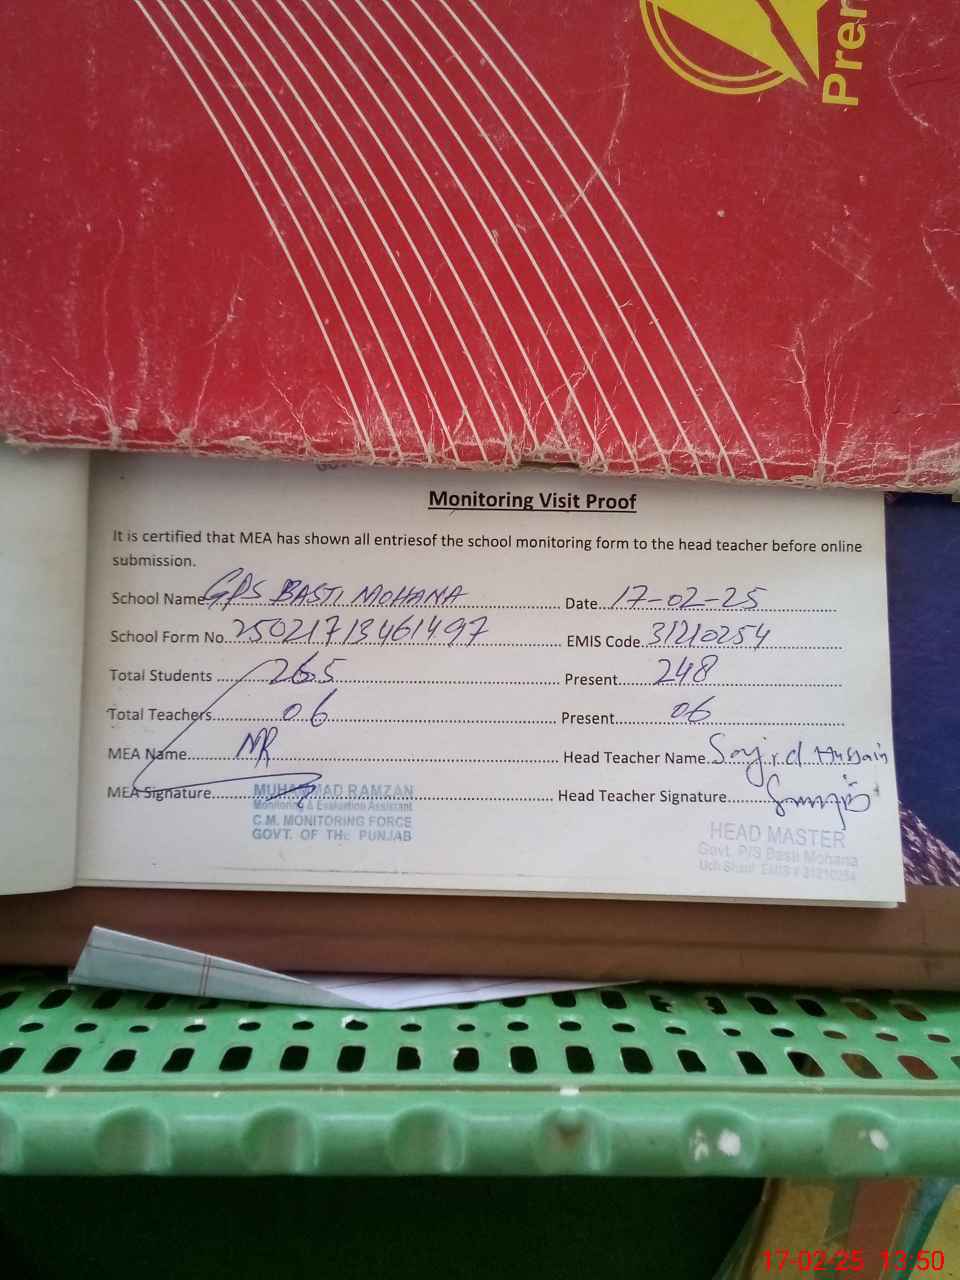 Pre
Monitoring Visit Proof
It is certified that MEA has shown all entriesof the school monitoring form to the head teacher before online
submission.
School Name GPS BASTI MOHANA Date 17-02-25
School Form No. 25021713461497 EMIS Code. 31210254
Total Students 265 Present 248
Total Teachers 06 Present 06
MEA Name MR Head Teacher Name Sajid Hussain
MEA Signature Head Teacher Signature
MUHAMMAD RAMZAN
Monitoring & Evaluation Assistant
C.M. MONITORING FORCE
GOVT. OF THE PUNJAB
HEAD MASTER
Govt. P/S Basti Mohana
Uch Sharif EMIS # 31210254
17-02-25 13:50